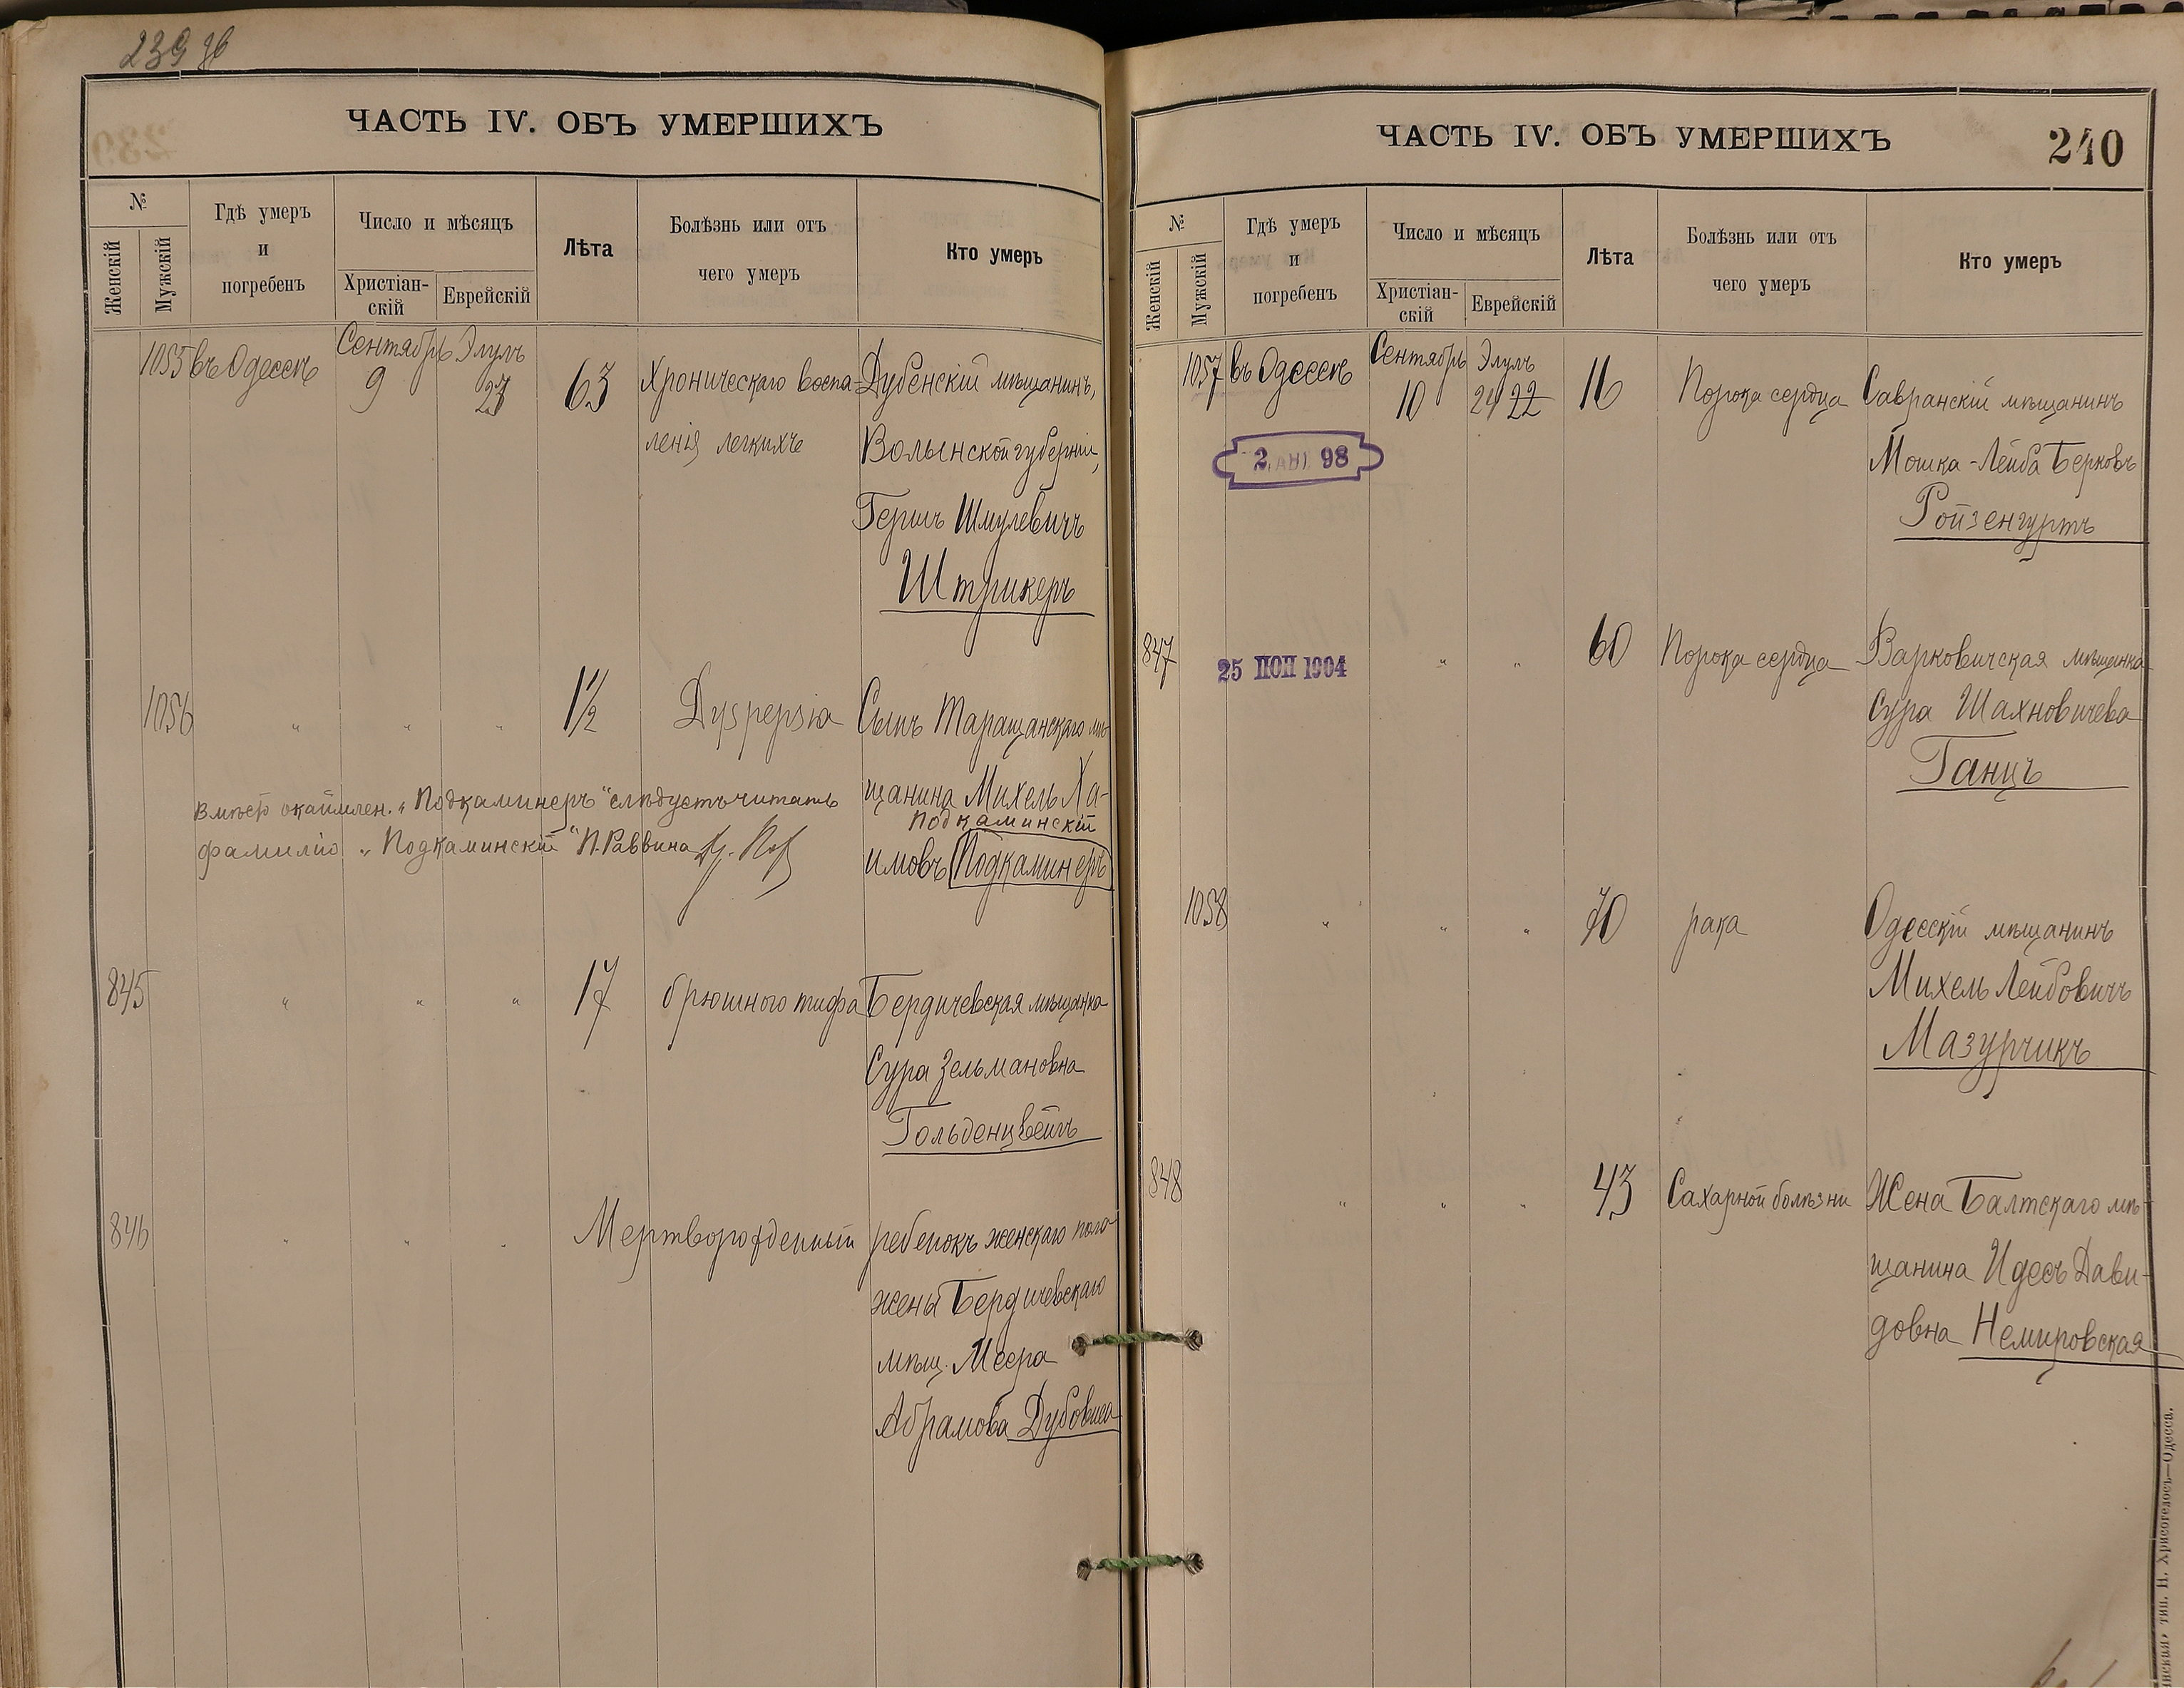 239 об
ЧАСТЬ IV. ОБЪ УМЕРШИХЪ
№
Женскій
Мужскій
Гдѣ умеръ
и
погребенъ
Число и мѣсяцъ
Христіан-
скій
Еврейскій
Лѣта
Болѣзнь или отъ
чего умеръ
Кто умеръ
1055 въ Одессѣ Сентябрь 9 Элулъ 23 63 Хроническаго воспа- Дубенскій мѣщанинъ,
ленія легкихъ Волынской губерніи,
Гершъ Шмулевичъ
Штрикеръ
1056 " " " 1 1/2 Dyspepsia Сынъ Таращанскаго мѣ-
щанина Михель Ха-
Подкаминскій
имовъ Подкаминеръ
Вмѣсто окаймлен. „Подкаминеръ“ слѣдуетъ читать
фамилію „Подкаминскій“ П. Раввина
845 " " " 17 брюшного тифа Бердичевская мѣщанка
Сура Зельмановна
Гольденцвейгъ
846 " " " Мертворожденный ребенокъ женскаго пола
жены Бердичевскаго
мѣщ. Меера
Абрамова Дубовиса
ЧАСТЬ IV. ОБЪ УМЕРШИХЪ
240
№
Женскій
Мужскій
Гдѣ умеръ
и
погребенъ
Число и мѣсяцъ
Христіан-
скій
Еврейскій
Лѣта
Болѣзнь или отъ
чего умеръ
Кто умеръ
1057 въ Одессѣ Сентябрь 10 Элулъ 24 22 16 Порока сердца Савранскій мѣщанинъ
2 АВГ. 98
Мошка-Лейба Берковъ
Ройзенгуртъ
847 25 ІЮН 1904 " " 60 Порока сердца Варковичская мѣщанка
Сура Шахновичева
Ганцъ
1058 " " " 70 рака Одесскій мѣщанинъ
Михель Лейбовичъ
Мазурчикъ
848 " " " 43 Сахарной болѣзни Жена Балтскаго мѣ-
щанина Идесъ Дави-
довна Немировская
тип. И. Хрисогелосъ—Одесса.